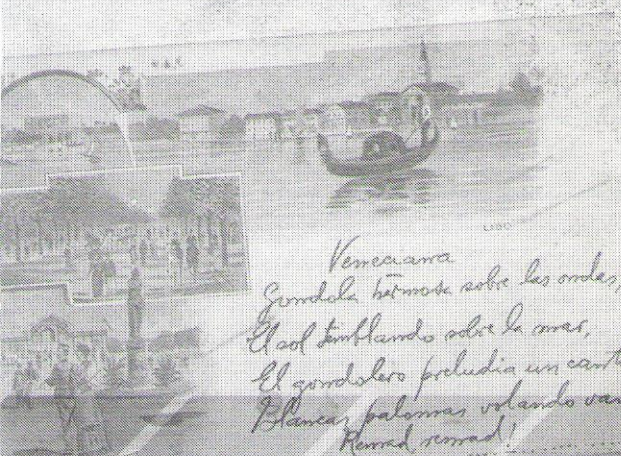 LIDO
Veneciana
Gondola hermosa sobre las ondas,
El sol temblando sobre la mar,
El gondolero preludia un cant
Blancas palomas volando van
Remad remad!